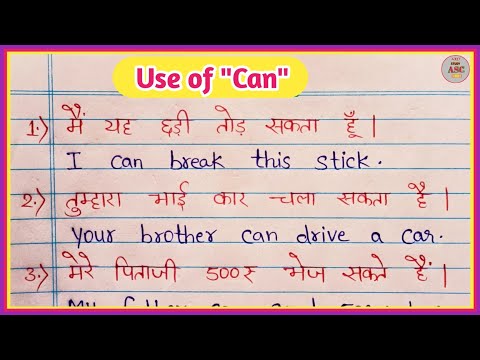 Use of "Can"
ASC
1.) मैं यह छड़ी तोड़ सकता हूँ |
I can break this stick.
2.) तुम्हारा भाई कार चला सकता है |
your brother can drive a car.
3.) मेरे पिताजी 500₹ भेज सकते हैं |